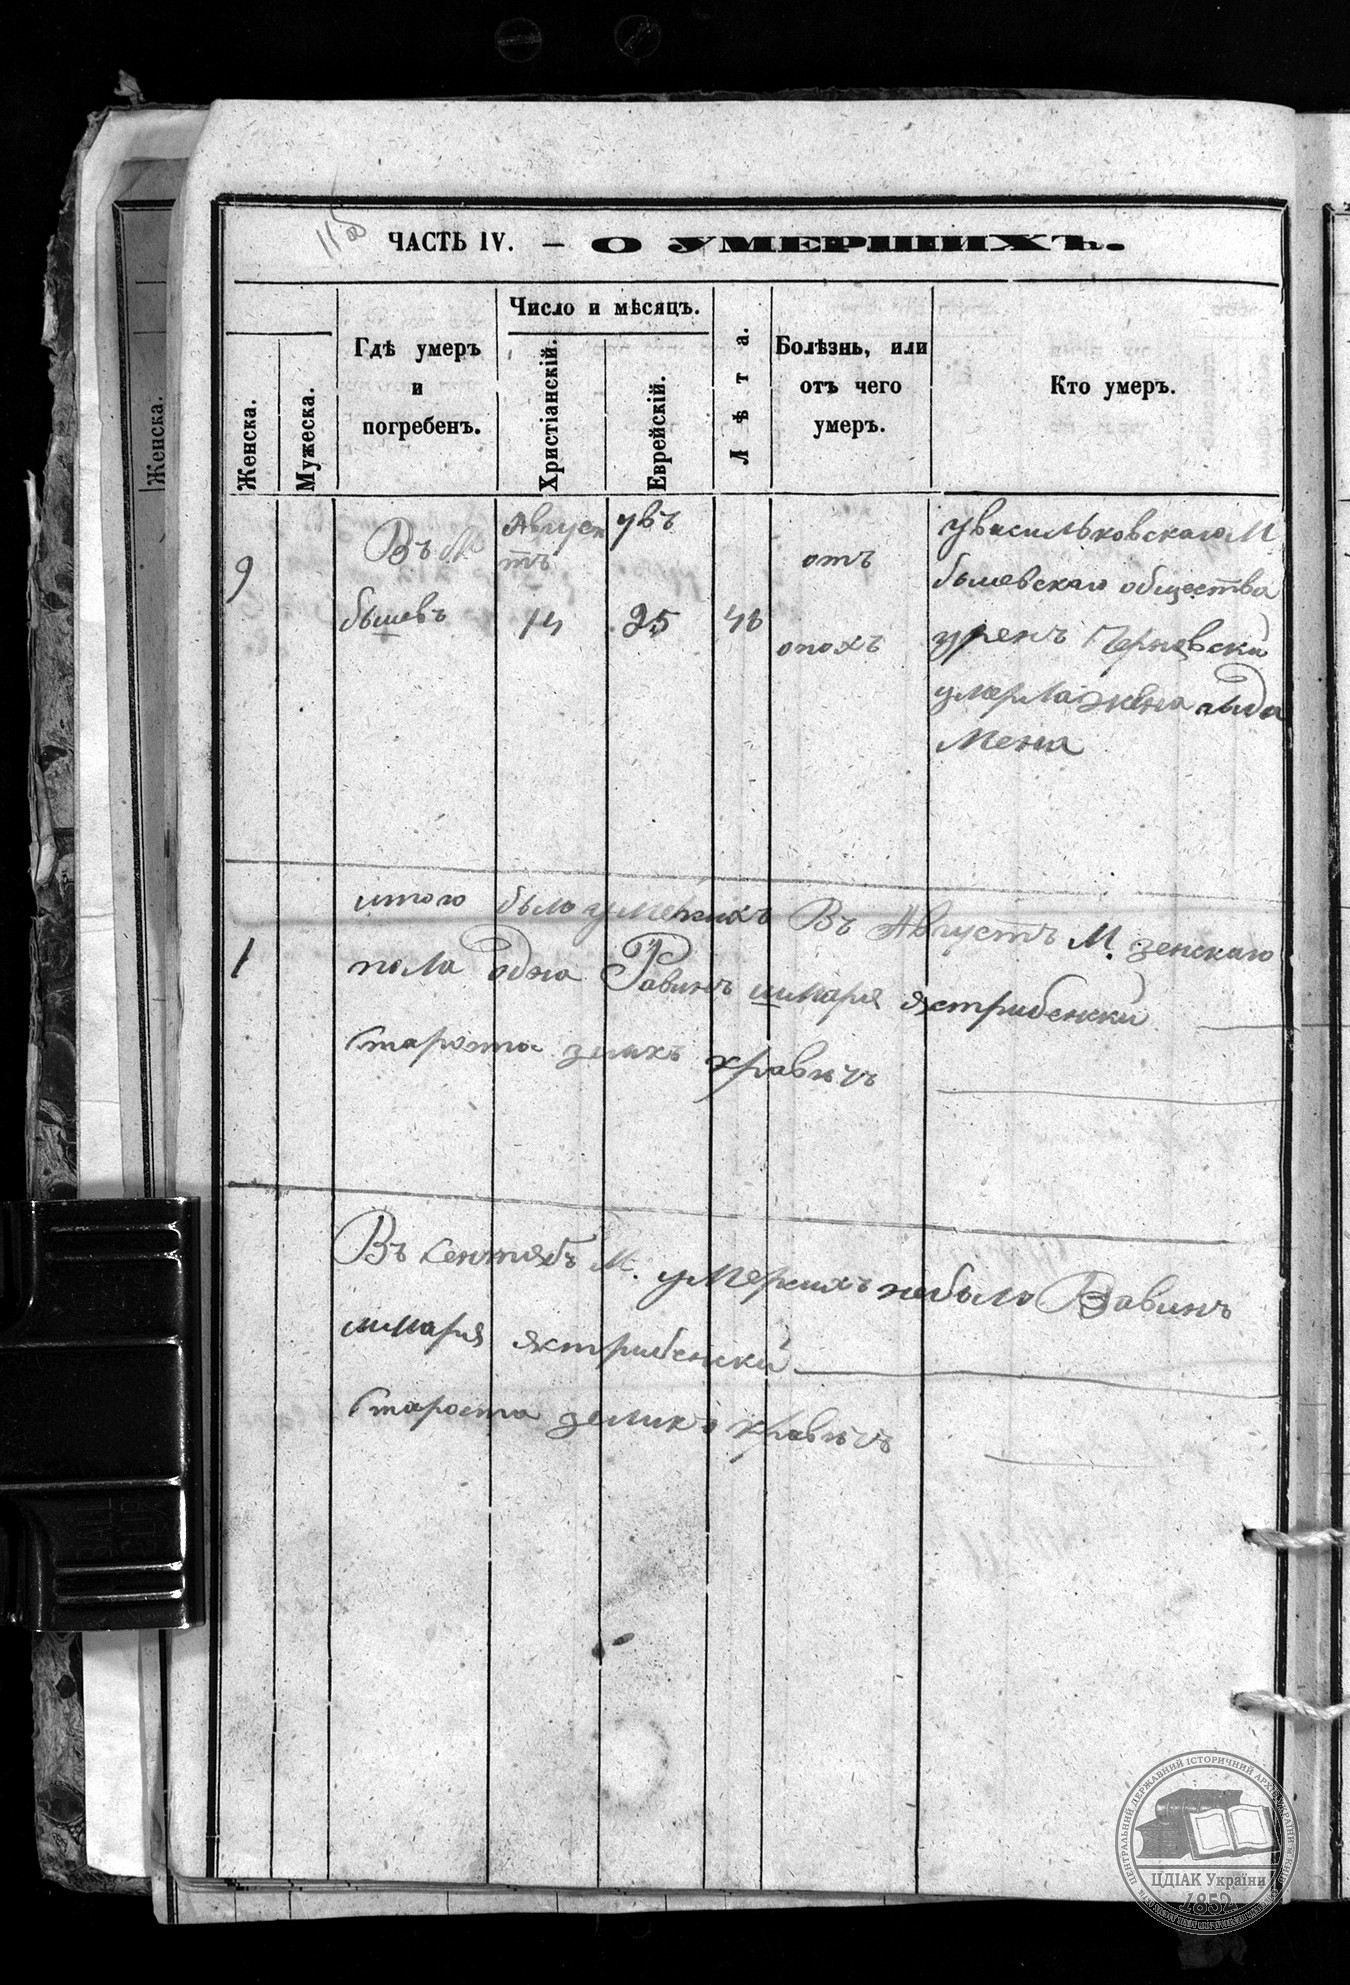 11 об
ЧАСТЬ IV. — О УМЕРШИХЪ.
Женска.
Мужеска.
Гдѣ умеръ
и
погребенъ.
Число и мѣсяцъ.
Христіанскій.
Еврейскій.
Лѣта.
Болѣзнь, или
отъ чего
умеръ.
Кто умеръ.
Женска.
9
Въ М
бышевъ
Август
тъ
14
увъ
25
46
отъ
опохъ
увасильковскаго М
бышевскаго общества
Черневски
умерла жена
Мена
1
итого было умерихъ Въ Августъ М. зенскаго
пола одна Равинъ шмаря ястрибенски
Староста зеликъ кравецъ
Въ Сентябъ М. умерихъ небыло Равинъ
шмаря ястрибенски
Староста зелико кравецъ
ЦЕНТРАЛЬНИЙ ДЕРЖАВНИЙ ІСТОРИЧНИЙ АРХІВ УКРАЇНИ М. КИЇВ
ЦДІАК України
1852